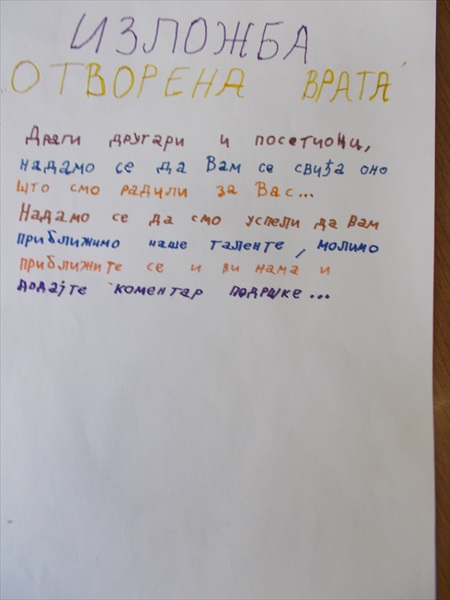 ИЗЛОЖБА
ОТВОРЕНА ВРАТА
Драги другари и посетиоци,
надамо се да Вам се свиђа оно
што смо радили за Вас...
Надамо се да смо успели да Вам
приближимо наше таленте, молимо
приближите се и ви нама и
додајте коментар подршке...